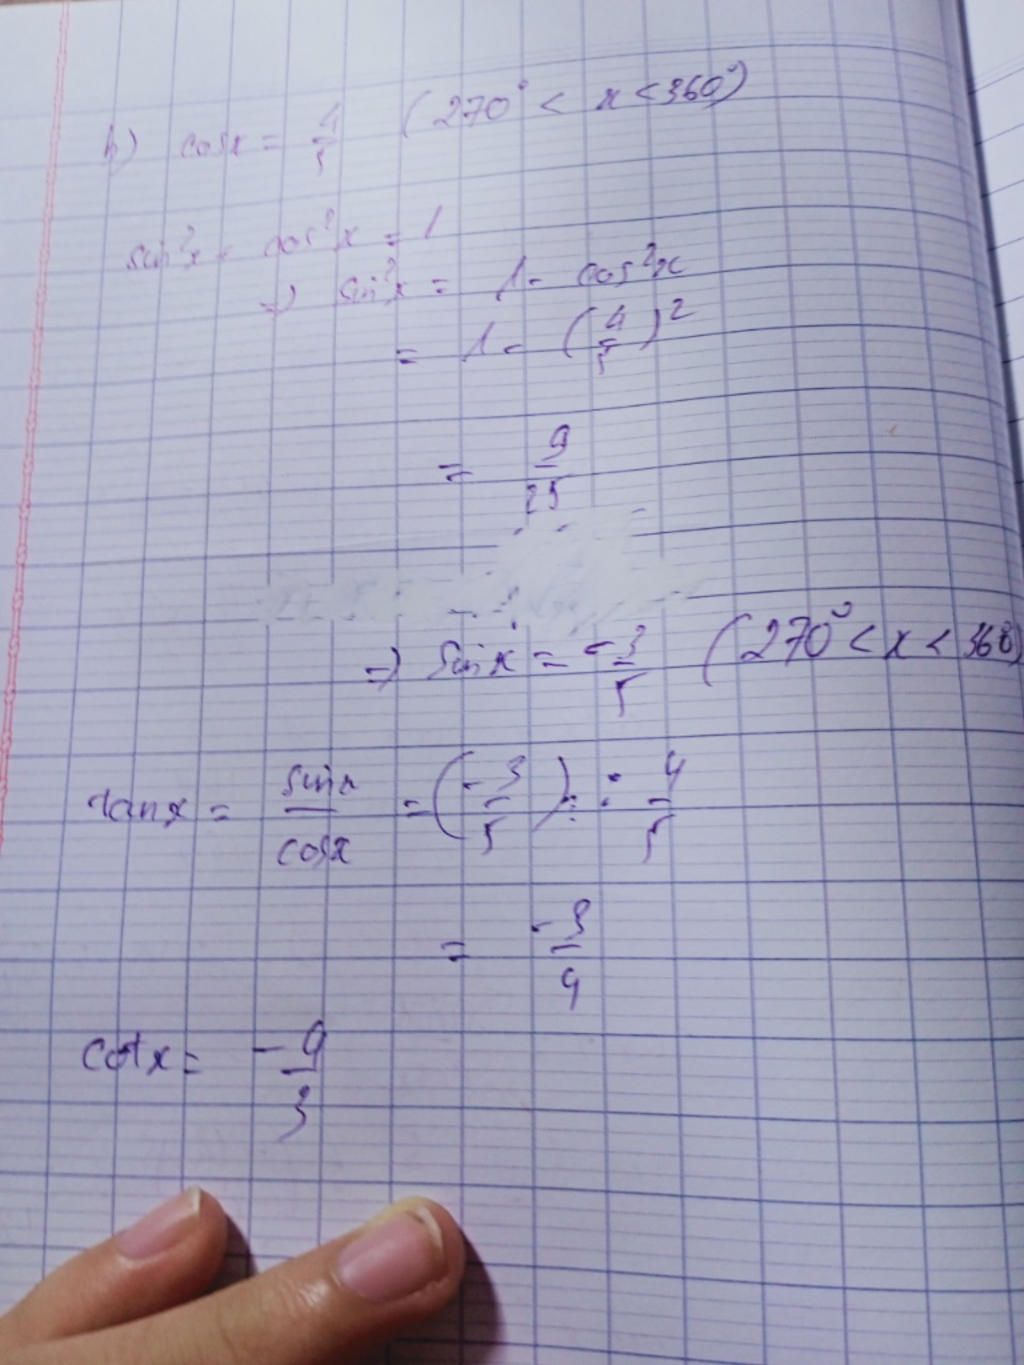 b) cosx = 4/5 (270° < x < 360°)
sin²x + cos²x = 1
=> sin²x = 1 - cos²x
= 1 - (4/5)²
= 9/25
=> sinx = -3/5 (270° < x < 360°)
tanx = sinx/cosx = (-3/5) : 4/5
= -3/4
cotx = -4/3